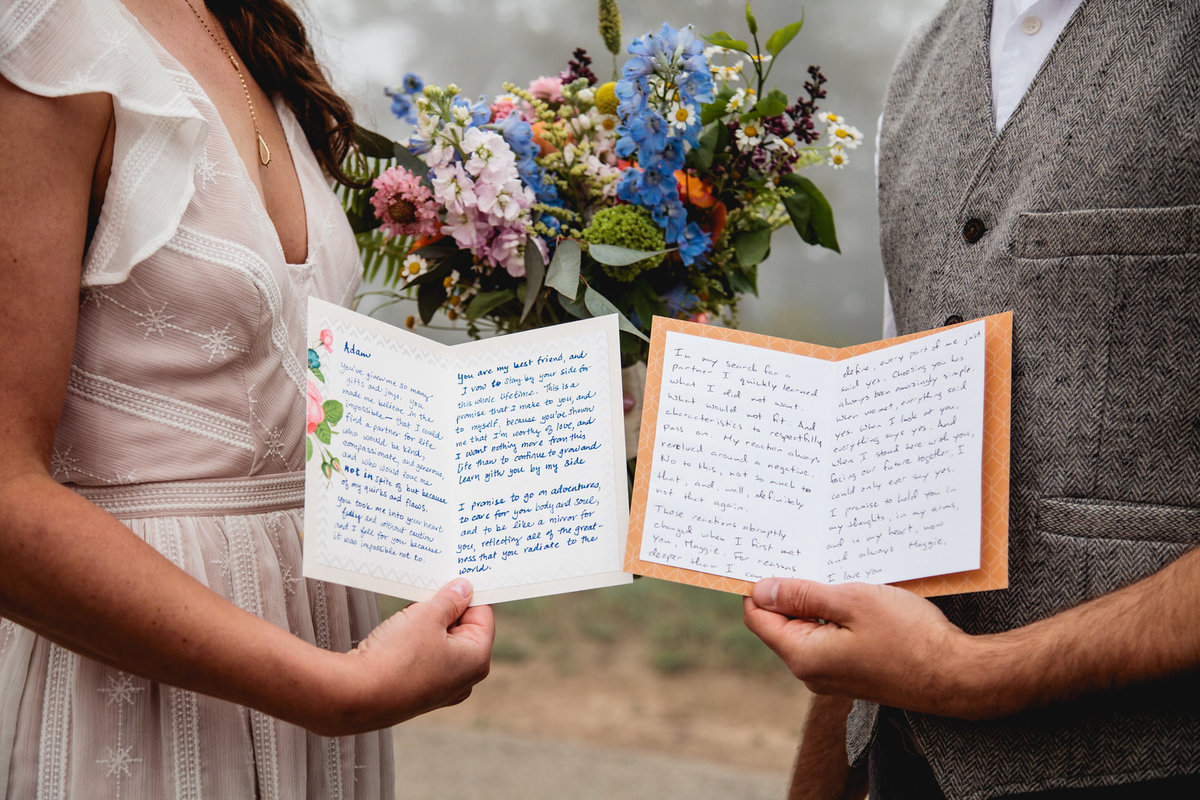 Adam
You've given me so many
gifts and joys. You
made me believe in the
impossible — that I could
find a partner for life
who would be kind,
compassionate, and generous,
and who would love me
not in spite of but because
of my quirks and flaws.
You took me into your heart
fully and without caution
and I fell for you because
it was impossible not to.
You are my best friend, and
I vow to stay by your side for
this whole lifetime. This is a
promise that I make to you, and
to myself, because you've shown
me that I'm worthy of love, and
I want nothing more from this
life than to continue to grow and
learn with you by my side
I promise to go on adventures,
to care for your body and soul,
and to be like a mirror for
you, reflecting all of the great-
ness that you radiate to the
world.
In my search for a
partner I quickly learned
what I did not want.
What would not fit. And
characteristics to respectfully
pass on. My reaction always
revolved around a negative.
No to this, not so much to
that, and, well, definitely
not that again.
Those reactions abruptly
changed when I first met
you, Maggie. For reasons
deeper than I can
define, every part of me just
said yes. Choosing you has
always been amazingly simple.
When we met, everything said
yes. When I look at you,
everything says yes. And
when I stand here with you,
facing our future together, I
could only ever say yes.
I promise to hold you in
my thoughts, in my arms,
and in my heart, now
and always Maggie.
I love you